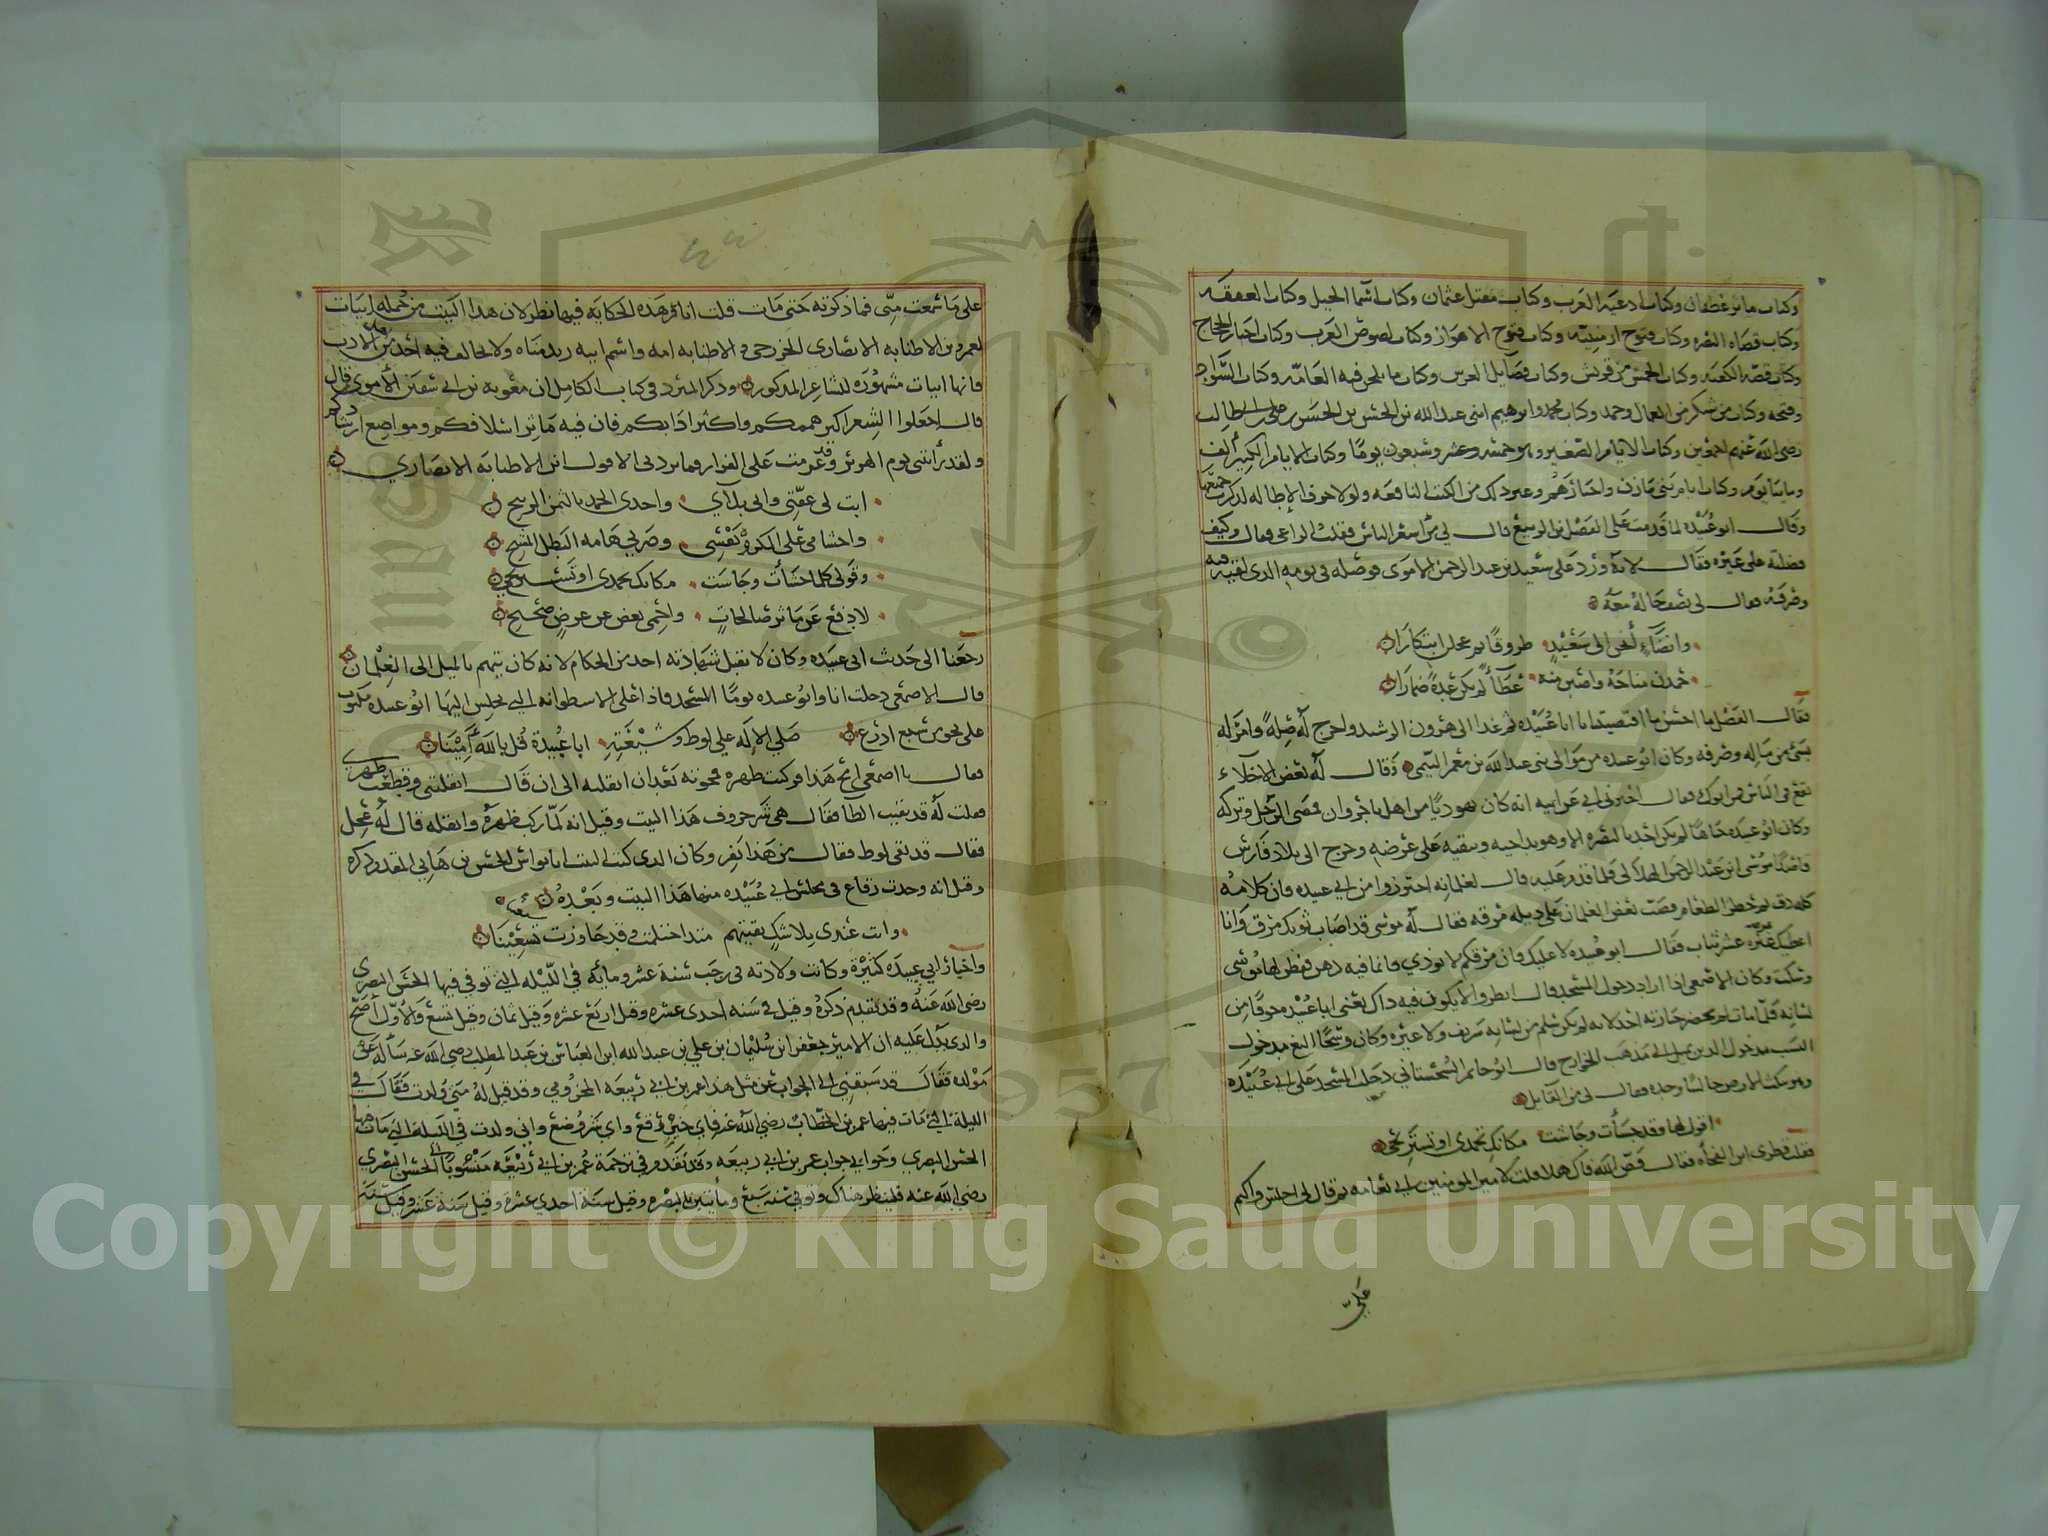 وكتاب ماثر غطفان وكتاب ادعية العرب وكتاب مقتل عثمان وكتاب اسما الخيل وكتاب العققه
وكتاب قضاه البصره وكتاب فتوح ارمينيه وكتاب فتوح الاهواز وكتاب لصوص العرب وكتاب اخبار الحجاج
وكتاب قصه الكعبه وكتاب الحمس من قريش وكتاب فضايل الفرس وكتاب ما يلحن فيه العامه وكتاب السواد
وفتحه وكتاب من شكر من العمال وحمد وكتاب محمد وابرهيم ابنى عبد الله بن الحسن بن الحسن بن علي بن ابي طالب
رضي الله عنهم اجمعين وكتاب الايام الصغير وهو خمسه وسبعون يوما وكتاب الايام الكبير الف
ومايتا يوم وكتاب ايام بني مازن واخبارهم وغير ذلك من الكتب النافعه ولولا خوف الاطاله لذكرت جميعها
وقال ابو عبيده لما قدمت على الفضل بن الربيع قال لي من اشعر الناس فقلت الراعي فقال وكيف
فضلته على غيره فقال لانه ورد على سعيد بن عبد الرحمن الاموى فوصله في يومه الذى لقيه فيه
وصرفه فقال لي يصف حاله معه
وانضاء انخن الى سعيد طروقا ثم عجلن ابتكارا
حمدن مناخه واصبن منه عطاء لم يكن عدة ضمارا
فقال الفضل ما احسن ما اقتضيتنا يا ابا عبيده ثم غدا الى هرون الرشيد واخرج له صلة وامر له
بشئ من ماله وصرفه وكان ابو عبيده من موالى بنى عبد الله بن معمر التيمى وقال له بعض الاجلاء
تقع في الناس فمن ابوك فقال اخبرني ابي عن ابيه انه كان يهوديا من اهل باجروان فمضى الرجل وتركه
وكان ابو عبيده جاهلا لم يكن احد بالبصره الا وهو يداجيه ويتقيه على عرضه وخرج الى بلاد فارس
قاصدا موسى بن عبد الرحمن الهلالي فلما قدم عليه قال لغلمانه احترزوا من ابي عبيده فان كلامه
كله دق ثم حضر الطعام فصب بعض الغلمان على ذيله مرقه فقال له موسى قد اصاب ثوبك مرق وانا
اعطيك عوضه عشر ثياب فقال ابو عبيده لا عليك فان مرقكم لا يوذي اى ما فيه دهن ففطن لها موسى
وسكت وكان الاصمعى اذا اراد دخول المسجد قال انظروا لا يكون فيه ذاك يعنى ابا عبيده خوفا من
لسانه فلما مات لم يحضر جنازته احد لانه لم يكن يسلم من لسانه شريف ولا غيره وكان وسخا الثغ مدخول
النسب مدخول الدين يميل الى مذهب الخوارج قال ابو حاتم السجستاني دخلت المسجد على ابي عبيده
وهو ينكت الارض جالسا وحده فقال لي من القايل
اقول لها وقد جشات وجاشت مكانك تحمدى او تستريحى
فقلت قطرى ابن الفجاه فقال فض الله فاك هلا قلت لامير المومنين ابي نعامه ثم قال لي اجلس واكتم
علي
علي ما سمعت مني فما ذكرته حتى مات قلت انا ثم هذه الحكايه فيها نظر لان هذا البيت من جمله ابيات
لعمرو بن الاطنابه الانصارى الخزرجي و الاطنابه امه واسم ابيه زيد مناه ولا يخالف فيه احد من اهل الادب
فانها ابيات مشهوره للشاعر المذكور وذكر المبرد في كتاب الكامل ان معويه بن ابي سفين الاموى قال
قال اجعلوا الشعر اكبر هممكم واكثر ادابكم فان فيه ماثر اسلافكم ومواضع ارشادكم
ولقد رأيتني يوم الهرير وقد عزمت على الفرار فما ردني الا قول ابن الاطنابه الانصاري
ابت لي عفتي وابى بلاي واخذى الحمد بالثمن الربيح
واجشامي على المكروه نفسي وضربي هامه البطل المشيح
وقولي كلما جشأت وجاشت مكانك تحمدى او تستريحي
لادفع عن ماثر صالحات واحمى بعض عن عرض صحيح
رجعنا الى حديث ابي عبيده وكان لا تقبل شهادته احد من الحكام لانه كان يتهم بالميل الى الغلمان
قال الاصمعى دخلت انا وابو عبيده يوما المسجد فاذا على الاسطوانه التي يجلس اليها ابو عبيده مكتوب
على نحو من سبع اذرع صلي الاله على لوط وشيعته ابا عبيدة قل بالله امينا
فقال يا اصمعي امح هذا فركبت ظهره فمحوته بعد ان اثقلته الى ان قال اثقلتني وقطعت ظهري
فقلت له قد بقيت الطا فقال هى شر حروف هذا البيت وقيل انه لما ركب ظهره واثقله قال له عجل
فقال قد بقى لوط فقال من هذا نفر وكان الذى كتب البيت ابا نواس الحسن بن هاني المقدم ذكره
وقيل انه وجدت رقاع في مجلس ابي عبيده منها هذا البيت وبعده
وانت عندى بلا شك بقيتهم منذ احتلمت وقد جاوزت سبعينا تسعينا
واخبار ابي عبيده كثيرة وكانت ولادته في رجب سنة عشر ومايه في الليله التي توفي فيها الحسن البصرى
رضي الله عنه وقد تقدم ذكره وقيل في سنه احدى عشره وقيل اربع عشره وقيل ثمان وقيل تسع والاول اصح
والذى يدل عليه ان الامير جعفر ابن سليمان بن علي بن عبد الله ابن العباس بن عبد المطلب رضي الله عنه سأله عن
مولده فقال قد سبقني الى الجواب عن مثل هذا عمر بن ابي ربيعه المخزومي وقد قيل له متى ولدت فقال في
الليلة التي مات فيها عمر بن الخطاب رضي الله عنه فاي خير رفع واي شر وضع واني ولدت في الليلة التي مات فيها
الحسن البصري وجوابي جواب عمر بن ابي ربيعه وقد تقدم في ترجمة عمر بن ابي ربيعه منسوبا الى الحسن البصري
رضي الله عنه فلينظر هناك وتوفي سنه سبع ومأيتين بالبصره وقيل سنة احدي عشره وقيل سنة عشر وقيل سنة
Copyright © King Saud University
1957